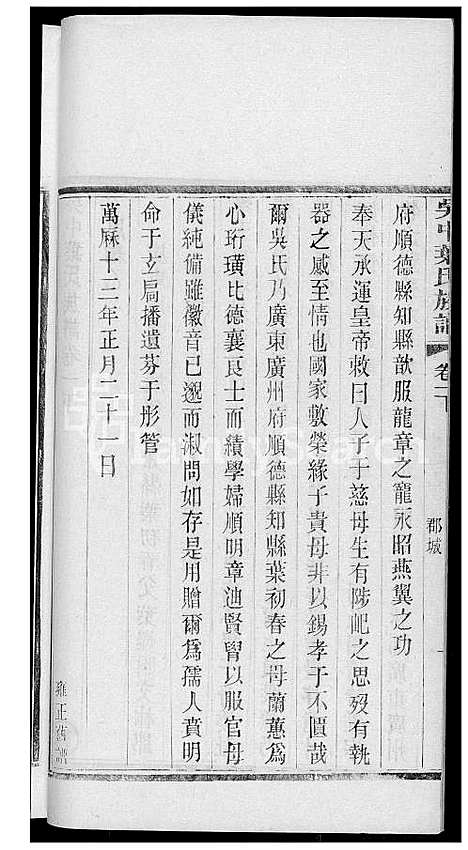 吳中葉氏族譜 卷二下
郡城
府順德縣知縣歆服龍章之寵永昭燕翼之功
奉天承運皇帝敕曰人子于慈母生有陟屺之思歿有執
器之感至情也國家敷榮緣子貴母非以錫孝于不匱哉
爾吳氏乃廣東廣州府順德縣知縣葉初春之母蘭蕙爲
心珩璜比德襄良士而績學婦順明章迪賢胄以服官母
儀純備雖徽音已邈而淑問如存是用贈爾爲孺人賁明
命于玄扃播遺芬于彤管
萬厤十三年正月二十一日
雍正舊譜